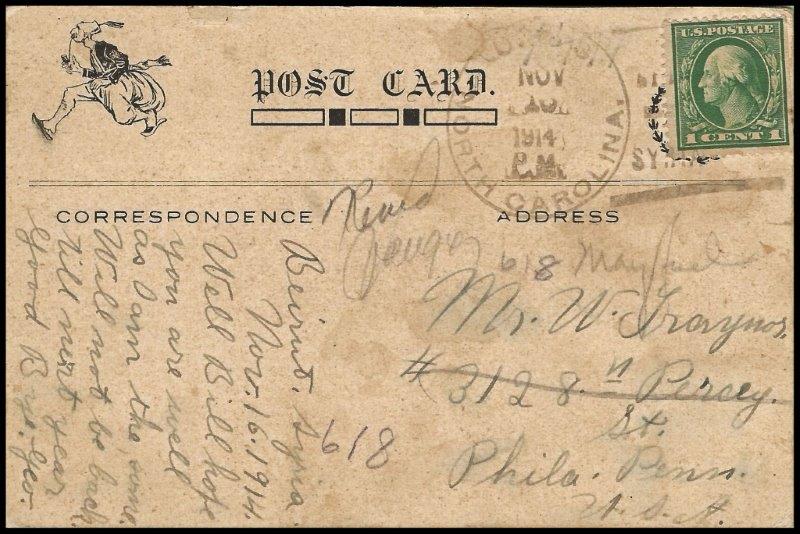 POST CARD.
U.S. POSTAGE
1 CENT 1
NOV
1914
P.M.
NORTH CAROLINA.
CORRESPONDENCE
ADDRESS
Beirut, Syria
Nov. 16. 1914.
Well Bill hope
you are well
as I am the same.
Will not be back
till next year
Good Bye. Geo.
618
618
Mr. W. Traynor,
# 3128 n Percy.
St.
Phila. Penn.
U. S. A.